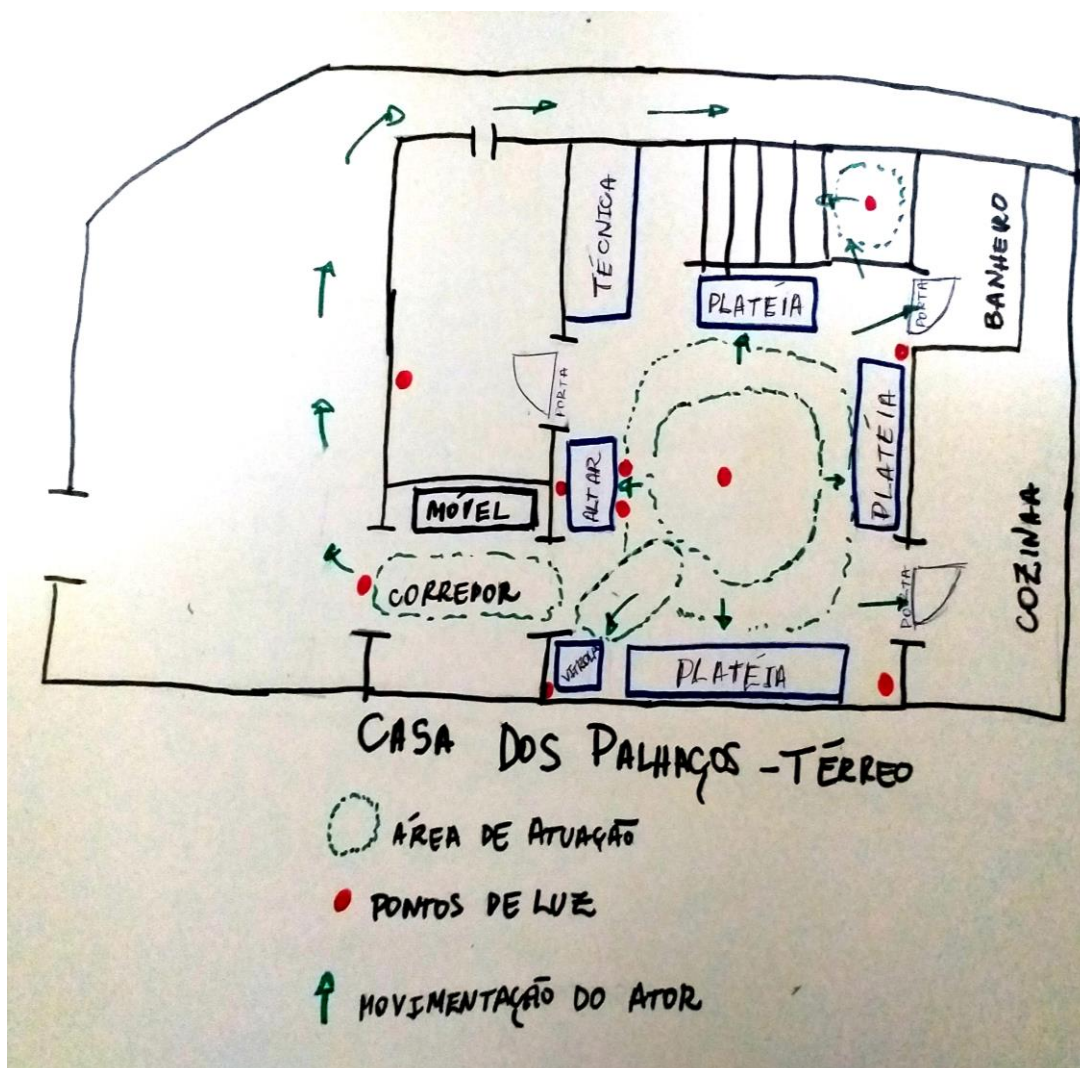 TÉCNICA
PLATÉIA
PORTA
BANHEIRO
PORTA
PLATÉIA
ALTAR
MÓVEL
CORREDOR
PORTA
COZINHA
VITROLA
PLATÉIA
CASA DOS PALHAÇOS - TÉRREO
ÁREA DE ATUAÇÃO
PONTOS DE LUZ
MOVIMENTAÇÃO DO ATOR